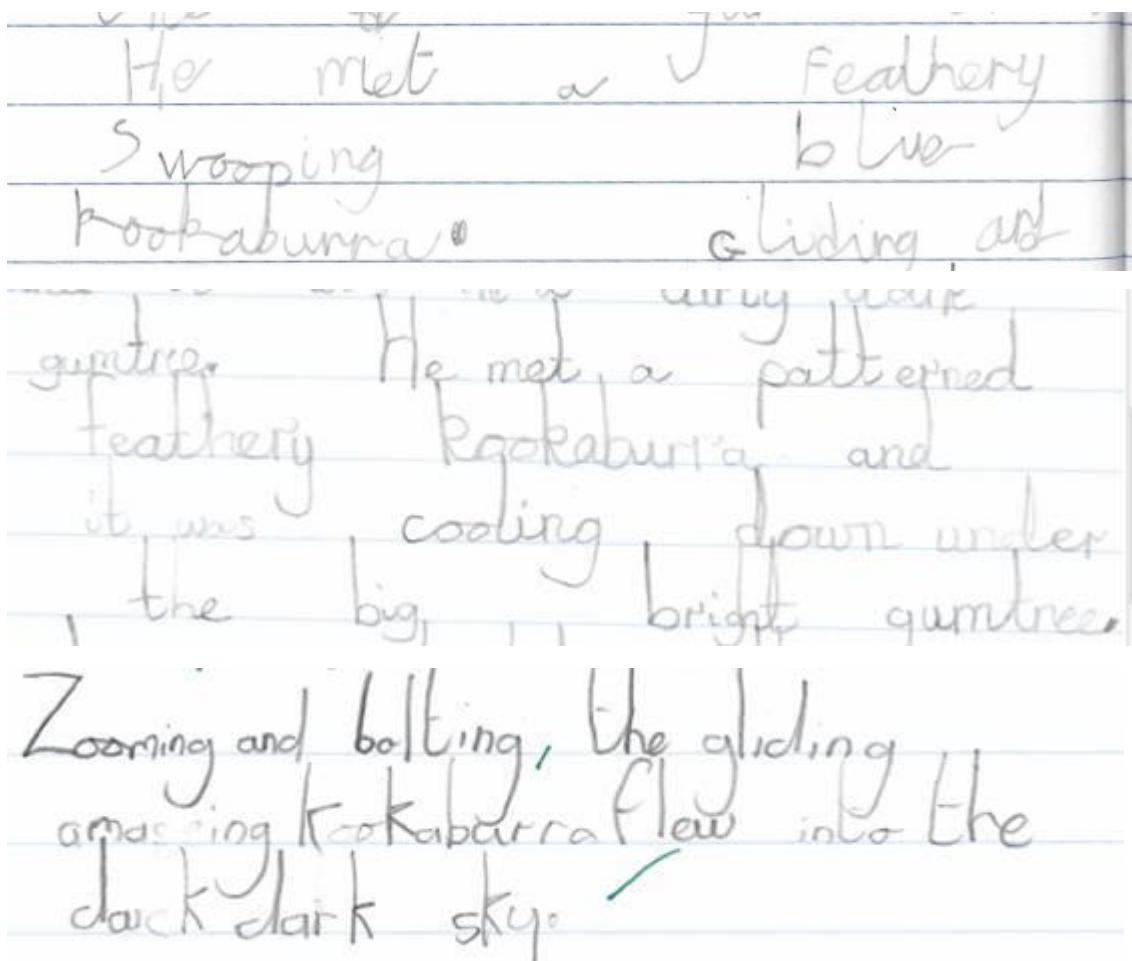 He met a Feathery
Swooping blue
kookaburra. Gliding and
gumtree. He met a patterned
feathery kookaburra and
it was cooling down under
the big, bright gumtree.
Zooming and bolting, the gliding
amazing kookaburra flew into the
dark dark sky.